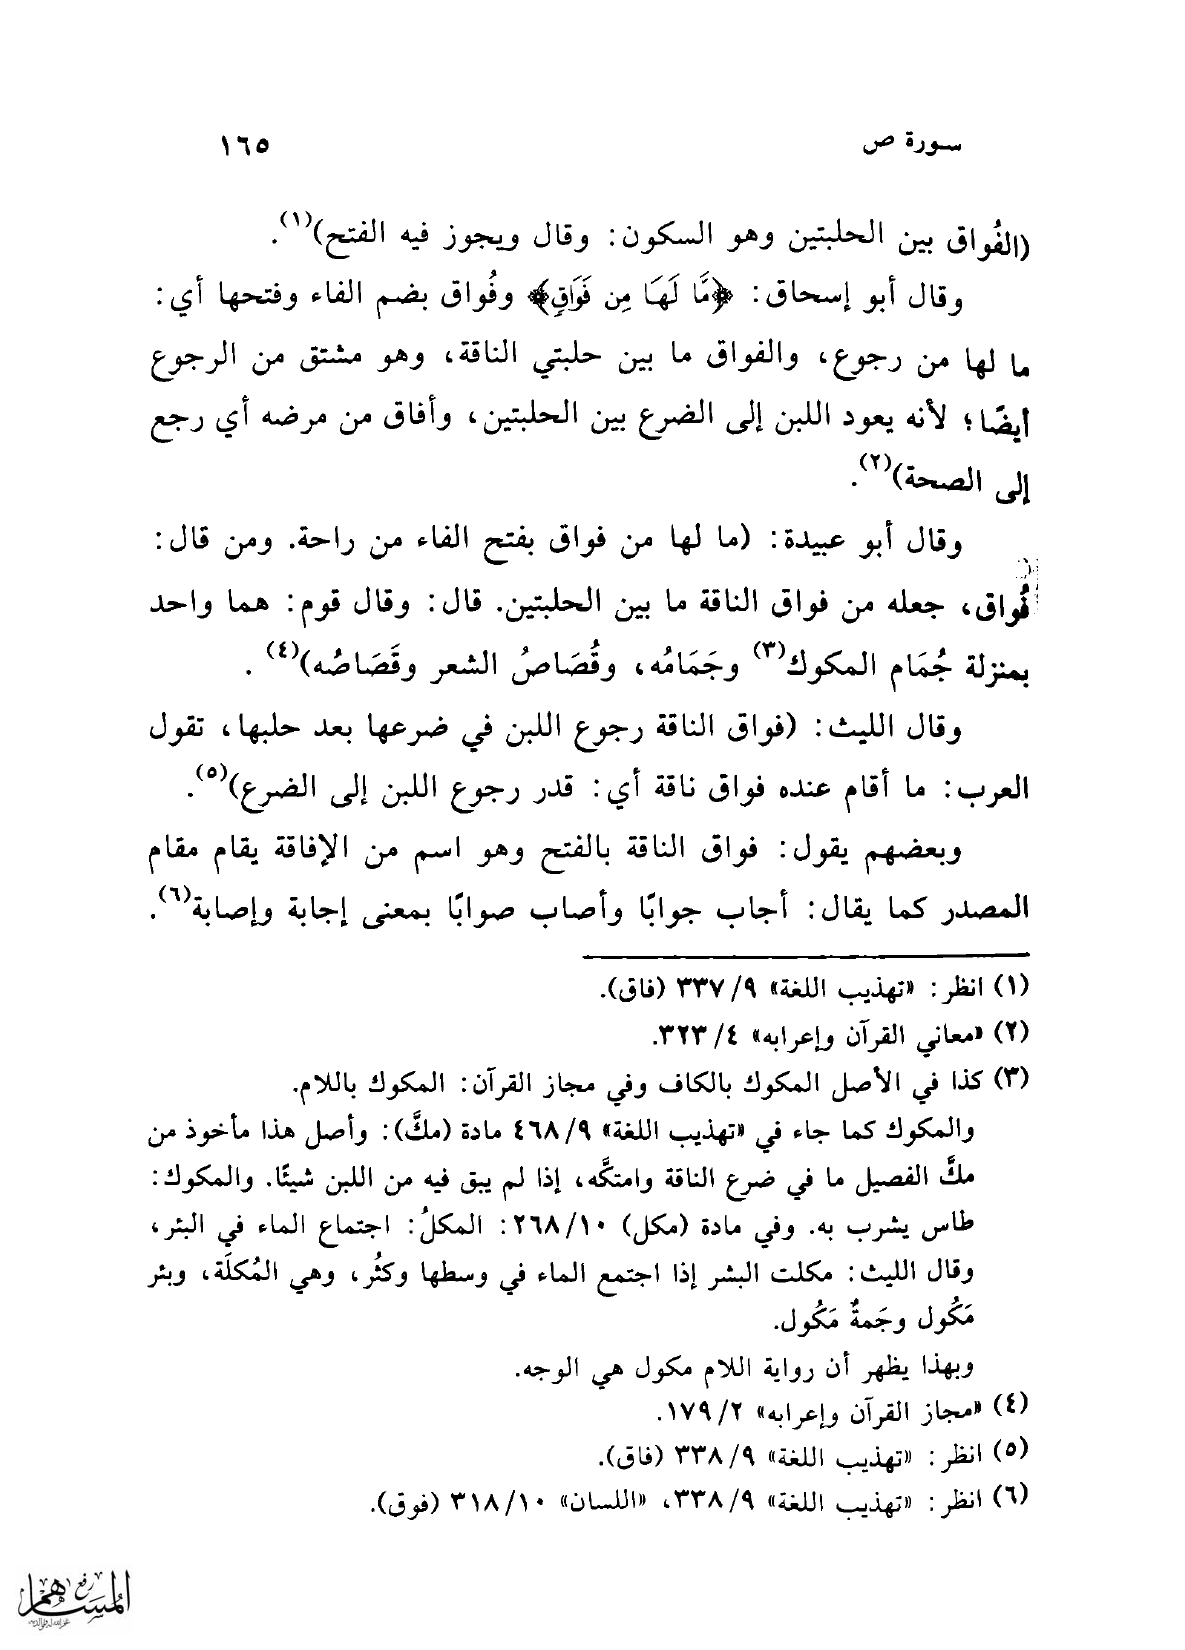 سورة ص
١٦٥
(الفُواق بين الحلبتين وهو السكون: وقال ويجوز فيه الفتح)(١).
وقال أبو إسحاق: ﴿مَّا لَهَا مِن فَوَاقٍ﴾ وفُواق بضم الفاء وفتحها أي:
ما لها من رجوع، والفواق ما بين حلبتي الناقة، وهو مشتق من الرجوع
أيضًا؛ لأنه يعود اللبن إلى الضرع بين الحلبتين، وأفاق من مرضه أي رجع
إلى الصحة)(٢).
وقال أبو عبيدة: (ما لها من فواق بفتح الفاء من راحة. ومن قال:
فُواق، جعله من فواق الناقة ما بين الحلبتين. قال: وقال قوم: هما واحد
بمنزلة جُمَام المكوك(٣) وجَمَامُه، وقُصَاصُ الشعر وقَصَاصُه)(٤) .
وقال الليث: (فواق الناقة رجوع اللبن في ضرعها بعد حلبها، تقول
العرب: ما أقام عنده فواق ناقة أي: قدر رجوع اللبن إلى الضرع)(٥).
وبعضهم يقول: فواق الناقة بالفتح وهو اسم من الإفاقة يقام مقام
المصدر كما يقال: أجاب جوابًا وأصاب صوابًا بمعنى إجابة وإصابة(٦).
(١) انظر: «تهذيب اللغة» ٩/ ٣٣٧ (فاق).
(٢) «معاني القرآن وإعرابه» ٤/ ٣٢٣.
(٣) كذا في الأصل المكوك بالكاف وفي مجاز القرآن: المكوك باللام.
والمكوك كما جاء في «تهذيب اللغة» ٩/ ٤٦٨ مادة (مكَّ): وأصل هذا مأخوذ من
مكَّ الفصيل ما في ضرع الناقة وامتكَّه، إذا لم يبق فيه من اللبن شيئًا. والمكوك:
طاس يشرب به. وفي مادة (مكل) ١٠/ ٢٦٨: المكلُ: اجتماع الماء في البئر،
وقال الليث: مكلت البشر إذا اجتمع الماء في وسطها وكثُر، وهي المُكلَة، وبئر
مَكُول وجَمةٌ مَكُول.
وبهذا يظهر أن رواية اللام مكول هي الوجه.
(٤) «مجاز القرآن وإعرابه» ٢/ ١٧٩.
(٥) انظر: «تهذيب اللغة» ٩/ ٣٣٨ (فاق).
(٦) انظر: «تهذيب اللغة» ٩/ ٣٣٨، «اللسان» ١٠/ ٣١٨ (فوق).